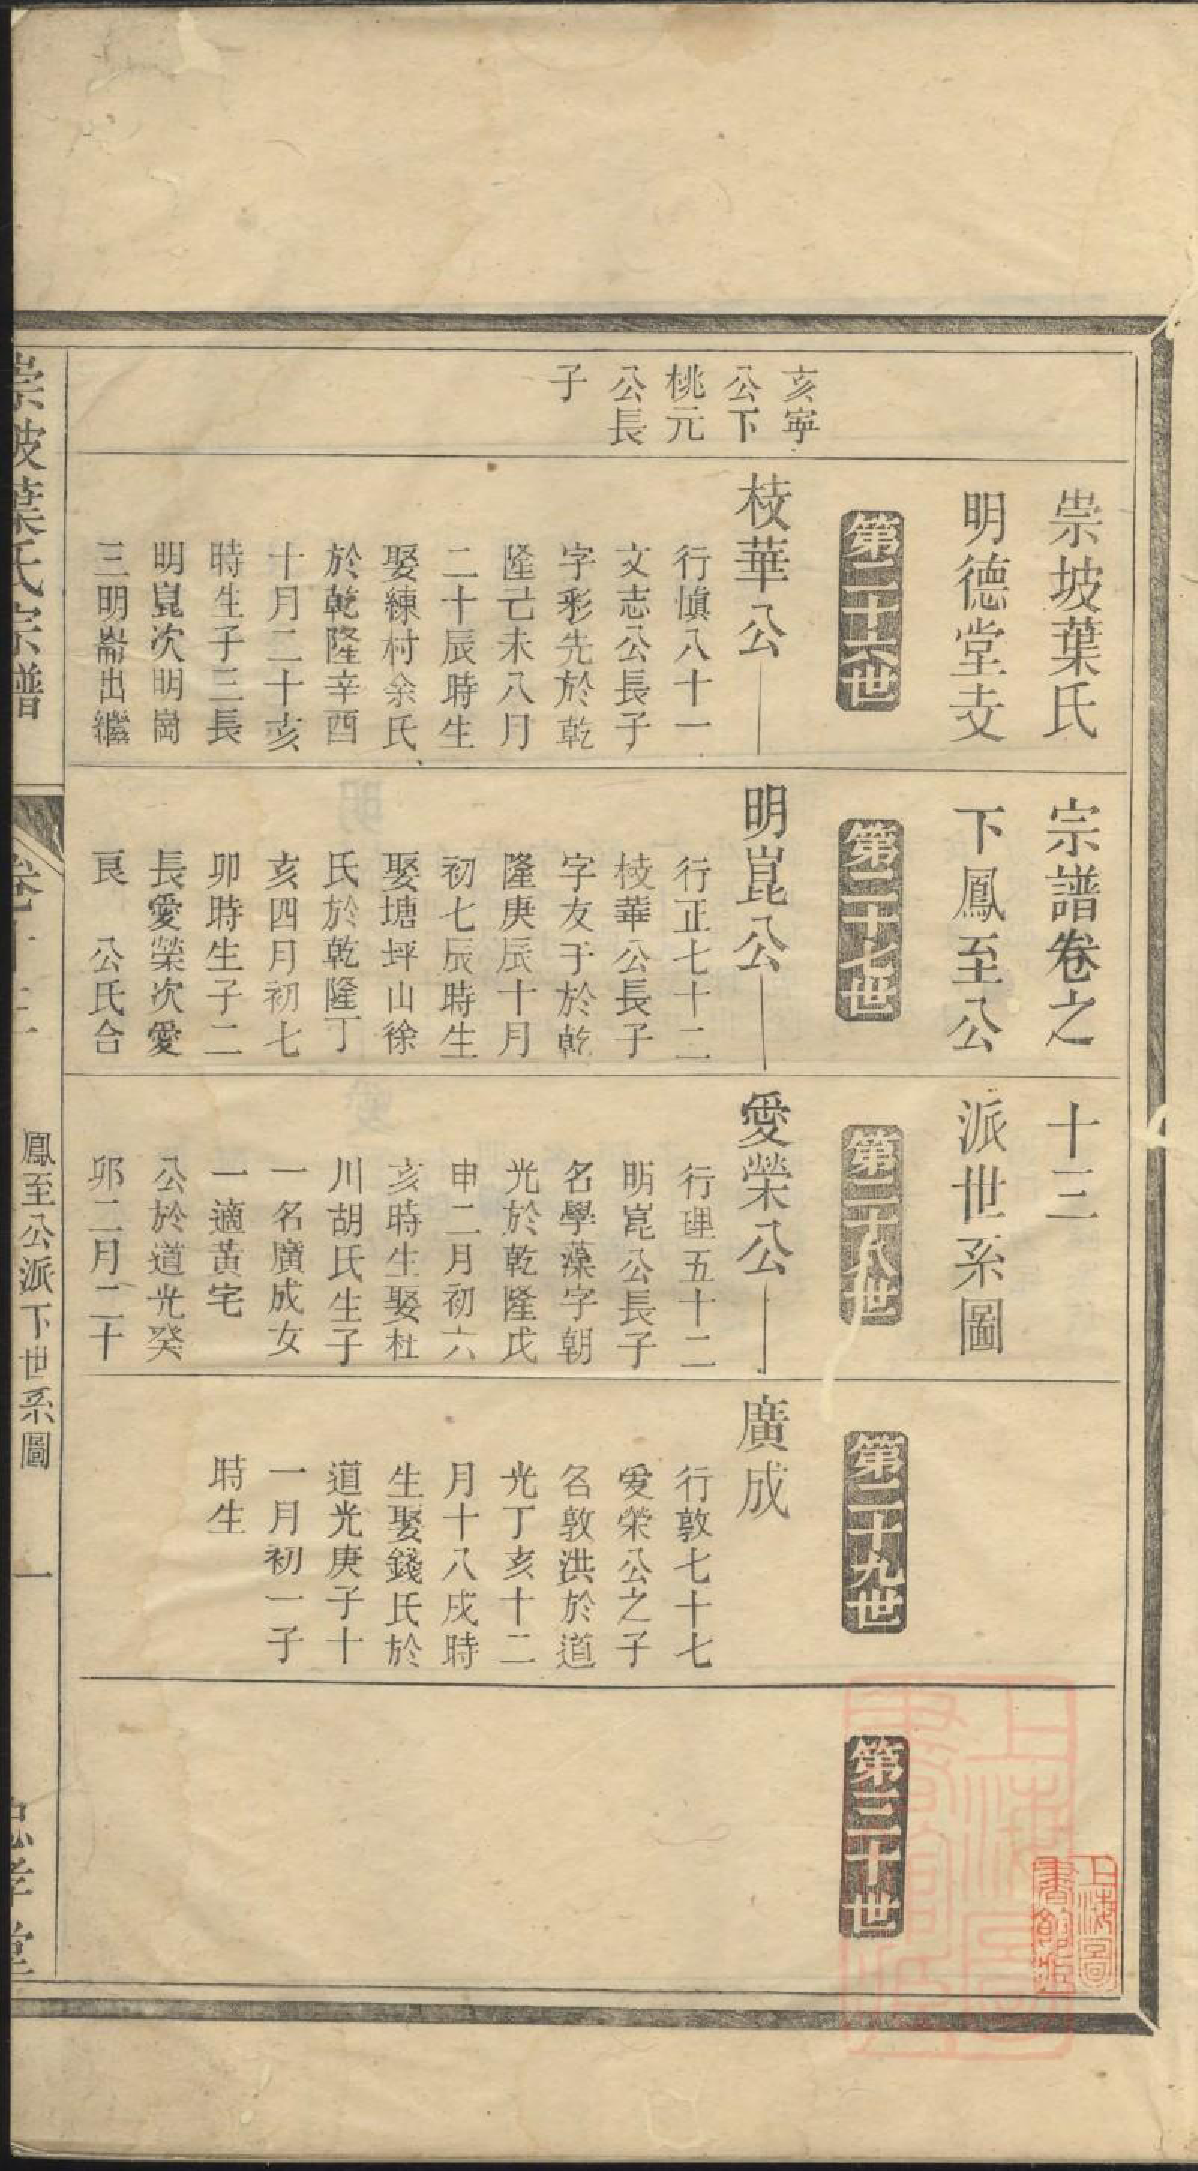 崇坡葉氏宗譜卷之十二
明德堂支下鳳至公派世系圖
第二十六世
第二十七世
第二十八世
第二十九世
第三十世
亥寧
公下
桃元
公長
子
枝華公
行慎八十一
文志公長子
字彩先於乾
隆己未八月
二十辰時生
娶練村余氏
於乾隆辛酉
十月二十亥
時生子三長
明崑次明崗
三明崙出繼
明崑公
行正七十二
枝華公長子
字友于於乾
隆庚辰十月
初七辰時生
娶塘坪山徐
氏於乾隆丁
亥四月初七
卯時生子二
長愛榮次愛
良 公氏合
愛榮公
行理五十二
明崑公長子
名學藻字朝
光於乾隆戊
申二月初六
亥時生娶杜
川胡氏生子
一名廣成女
一適黃宅
公於道光癸
卯二月二十
廣成
行敦七十七
愛榮公之子
名敦洪於道
光丁亥十二
月十八戌時
生娶錢氏於
道光庚子十
一月初一子
時生
崇坡葉氏宗譜
卷十二
鳳至公派下世系圖
一
忠孝堂
上海圖
書館藏